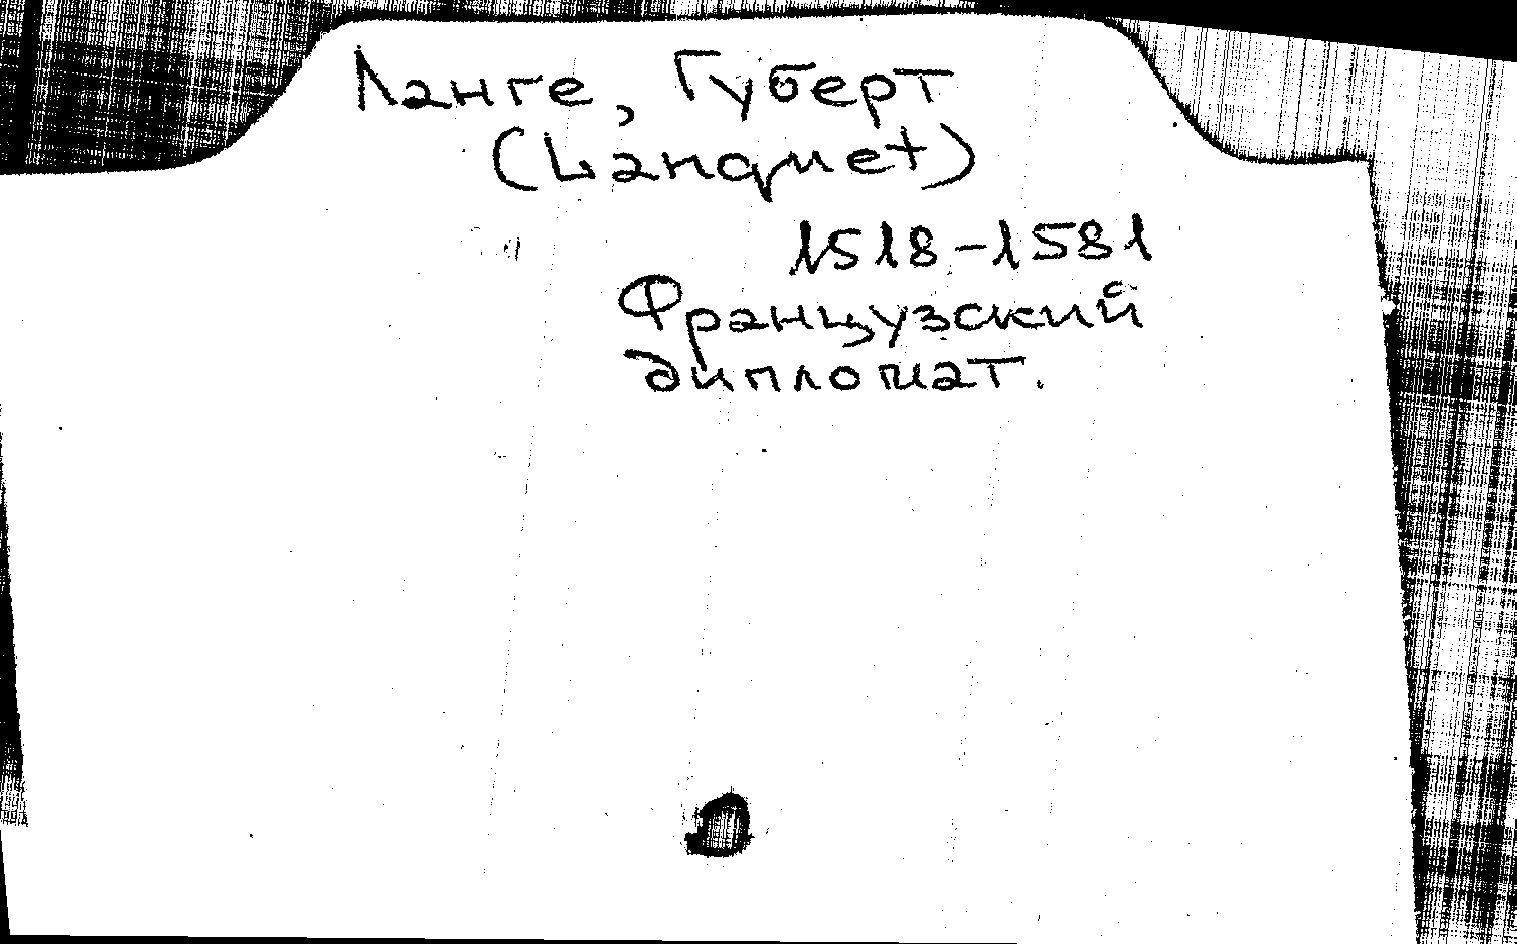 Ланге, Губерт
(Languet)
1518-1581
Французский
дипломат.